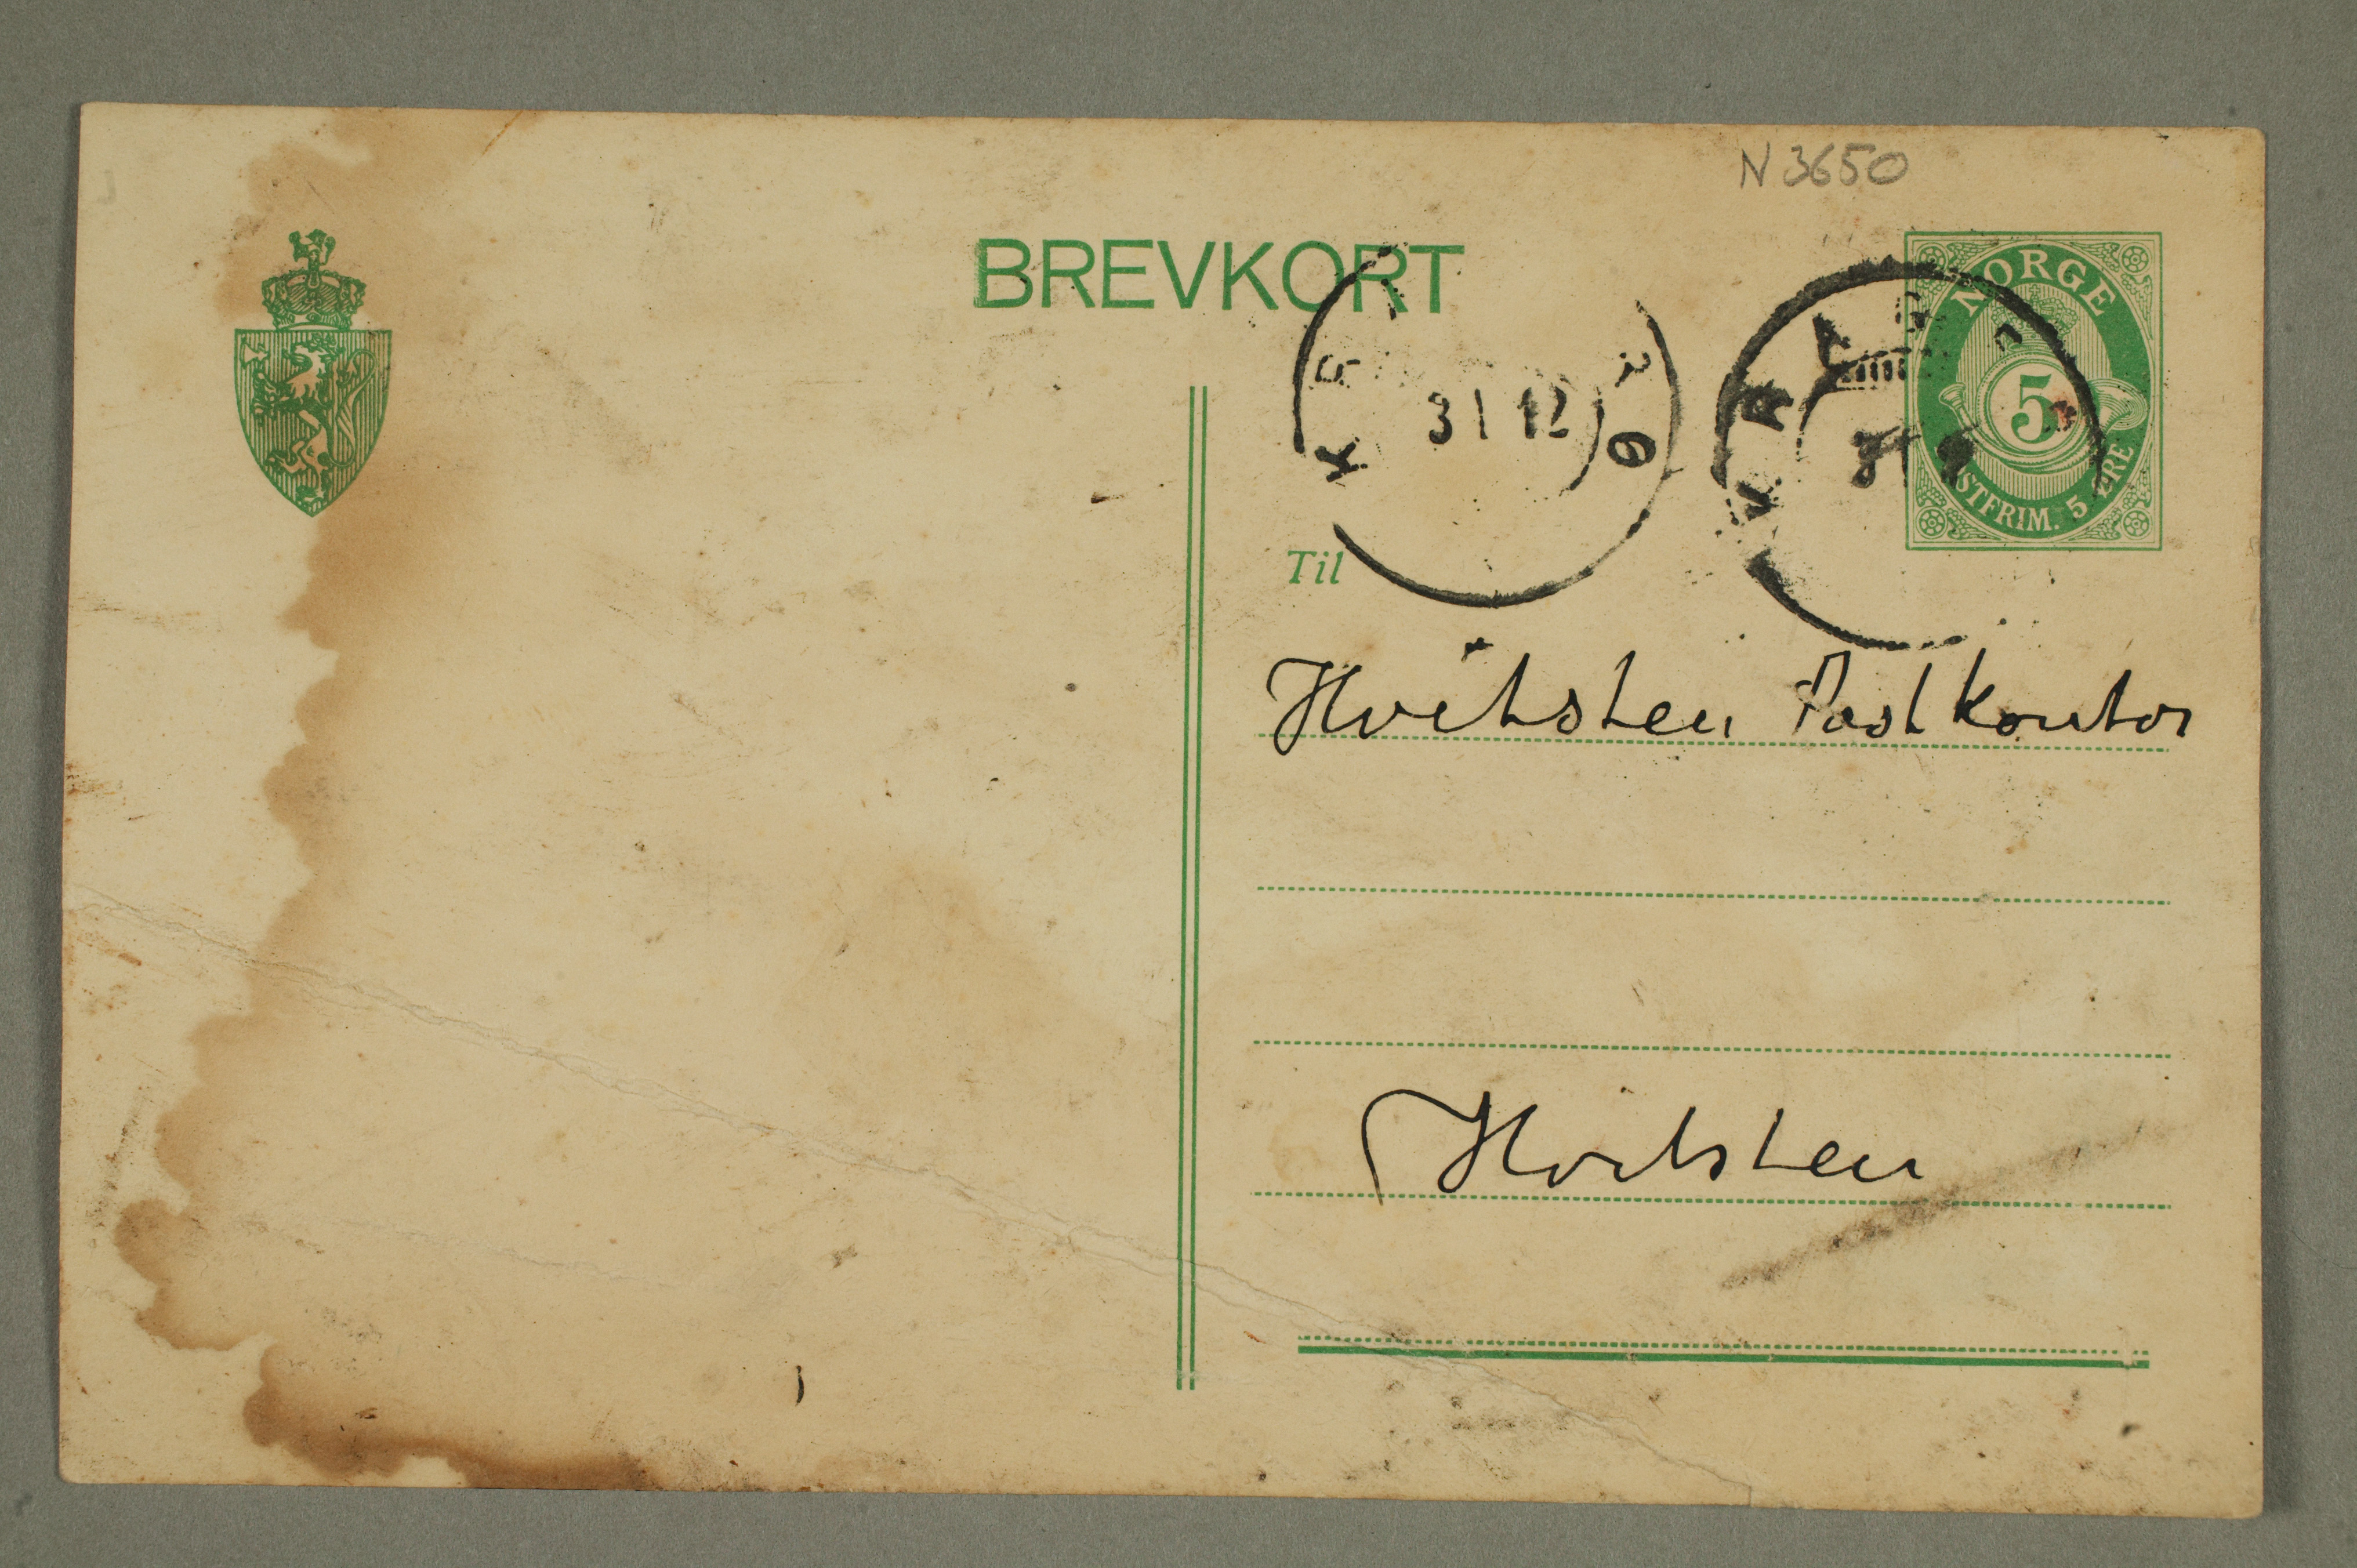 N 3650
BREVKORT
NORGE
5
POSTFRIM. 5 ØRE
KRAGERØ
31 12
KRAGERØ
Til
Hvitsten Postkontor
Hvitsten